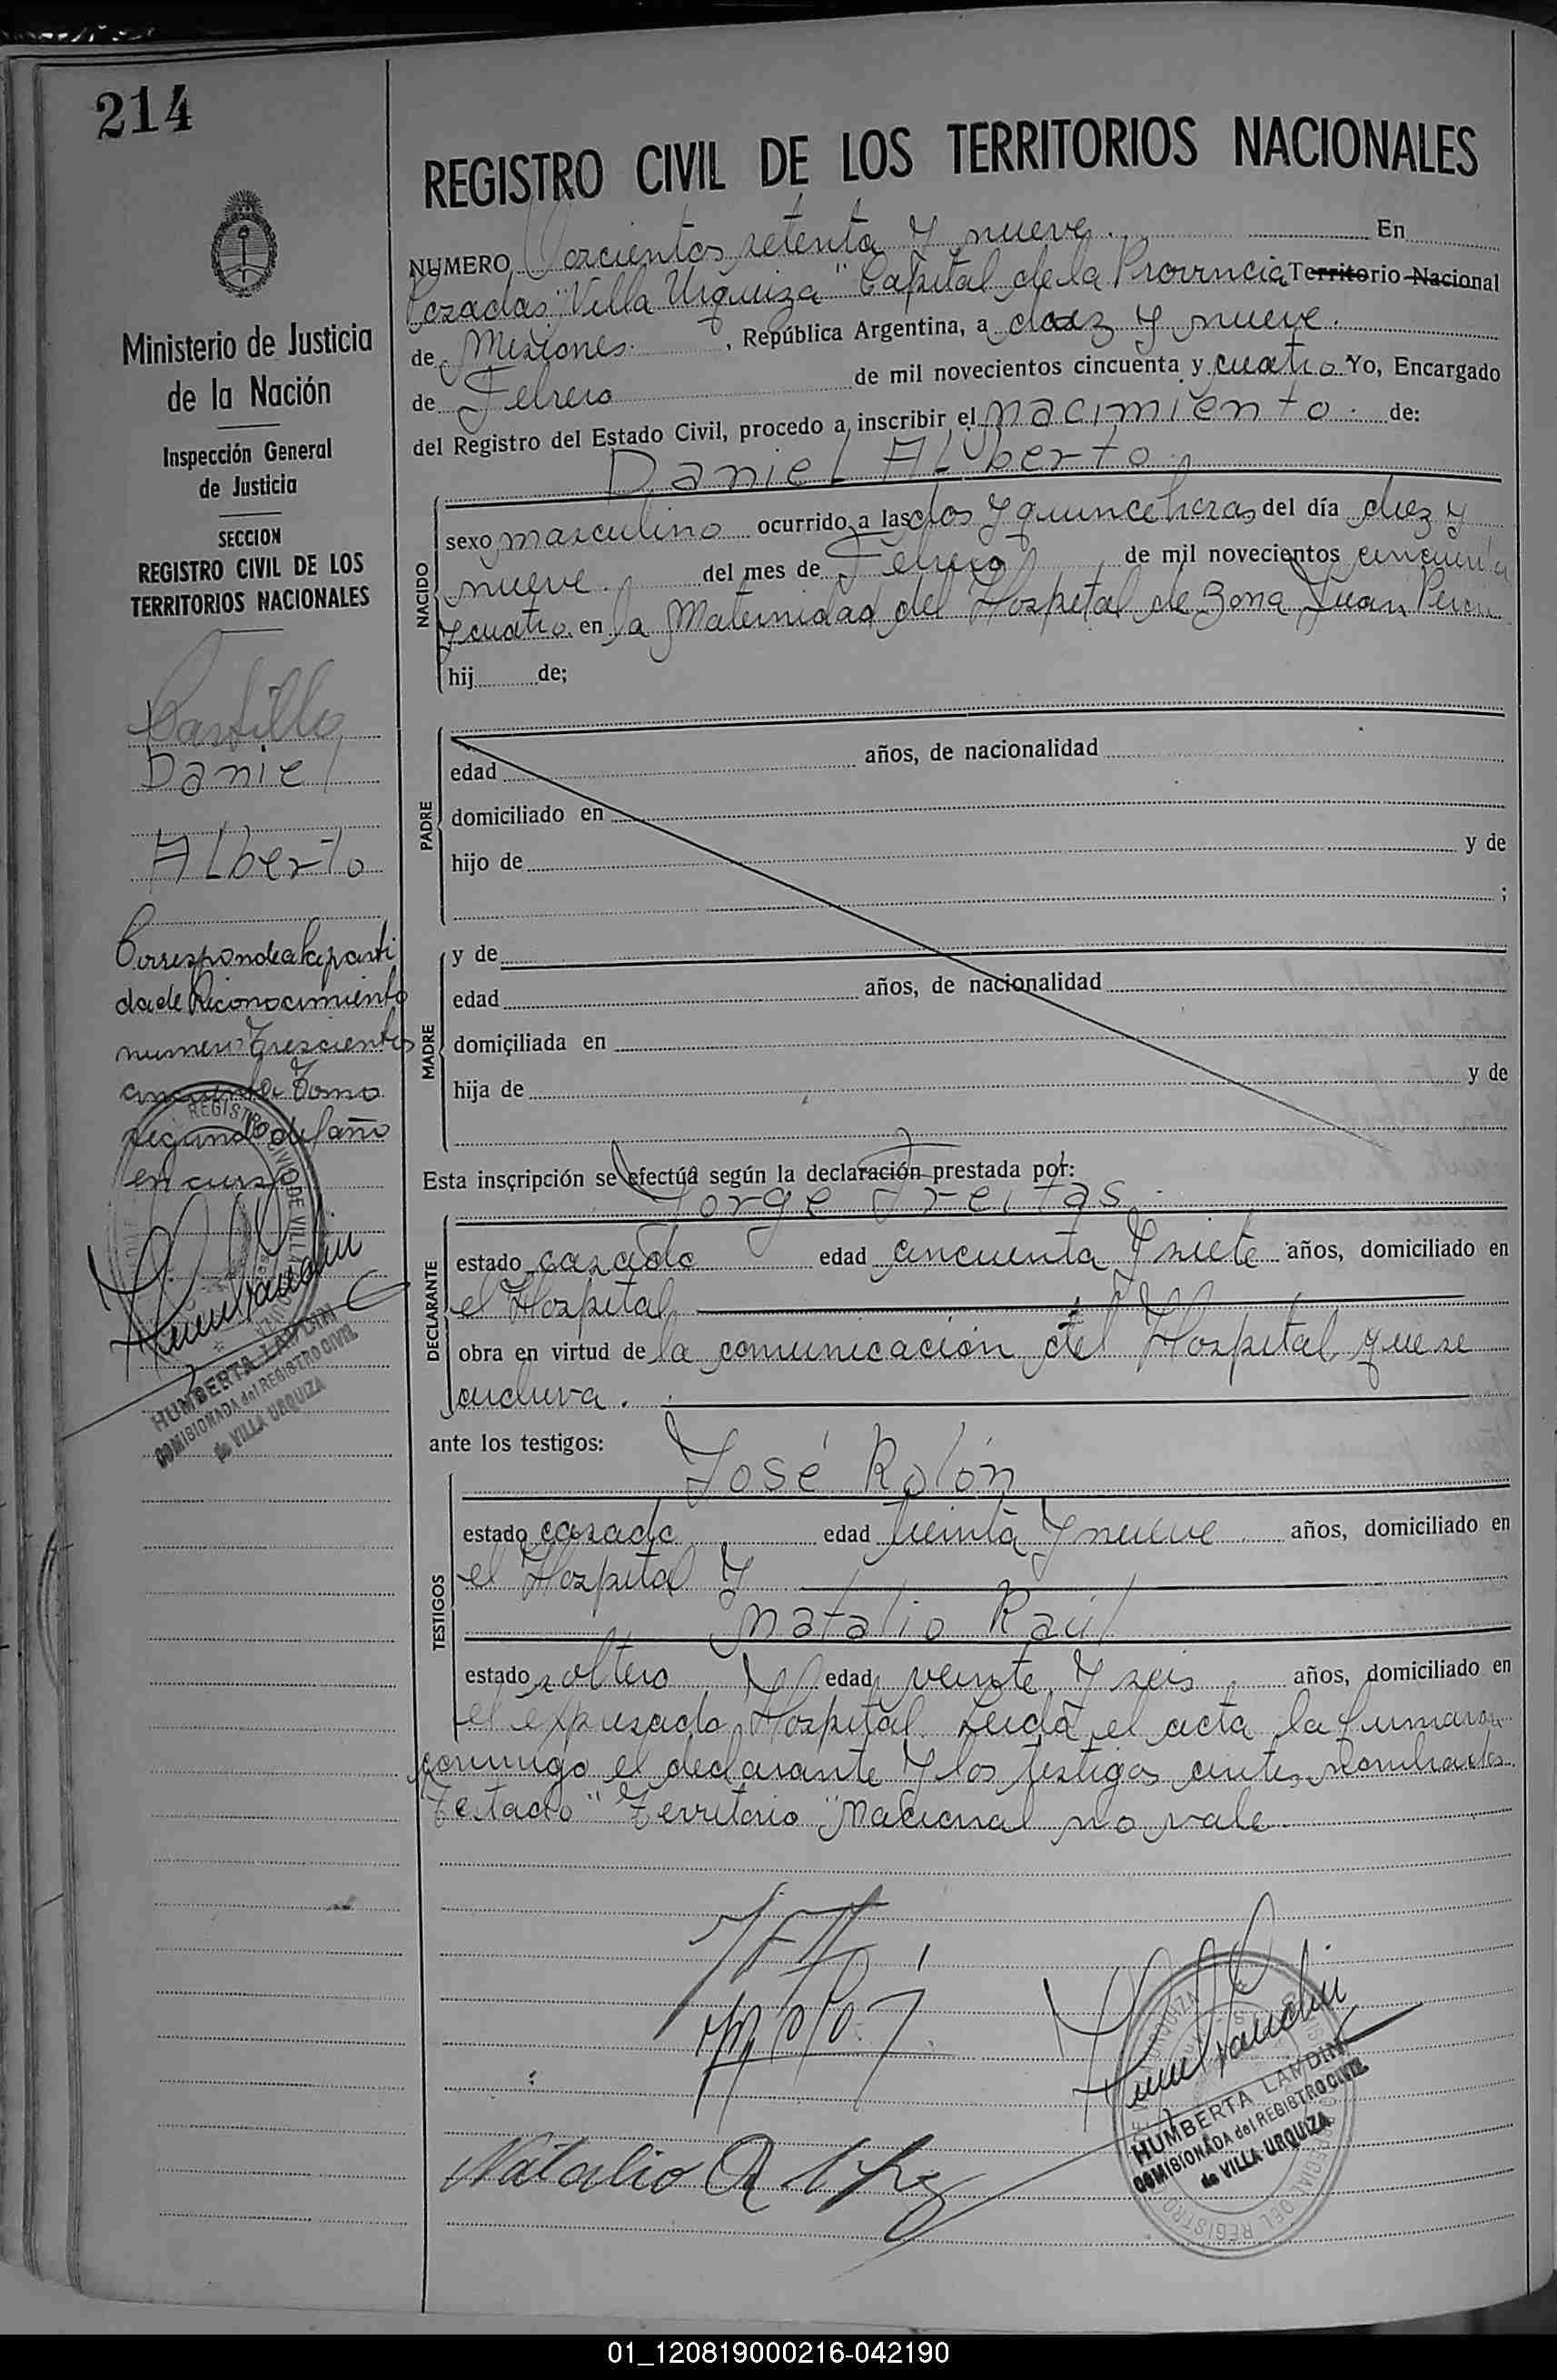 214
Ministerio de Justicia
de la Nación
Inspección General
de Justicia
SECCION
REGISTRO CIVIL DE LOS
TERRITORIOS NACIONALES
Castillo
Daniel
Alberto
Corresponde a la parti
da de Reconocimiento
numero Trescientos
cincuenta Tomo
segundo del año
en curso
HUMBERTA LANDIN
COMISIONADA del REGISTRO CIVIL
de VILLA URQUIZA
REGISTRO CIVIL DE LOS TERRITORIOS NACIONALES
NUMERO Doscientos setenta y nueve. En
Posadas "Villa Urquiza" Capital de la Provincia Territorio Nacional
de Misiones. , República Argentina, a diez y nueve.
de Febrero de mil novecientos cincuenta y cuatro Yo, Encargado
del Registro del Estado Civil, procedo a inscribir el nacimiento. de:
Daniel Alberto
NACIDO
sexo masculino ocurrido a las dos y quince horas del día diez y
nueve. del mes de Febrero de mil novecientos cincuenta
y cuatro en la Maternidad del Hospital de Zona Juan Perón
hij de;
PADRE
edad años, de nacionalidad
domiciliado en
hijo de y de
;
MADRE
y de
edad años, de nacionalidad
domiciliada en
hija de y de
Esta inscripción se efectúa según la declaración prestada por:
Jorge Freitas
DECLARANTE
estado casado edad cincuenta y siete años, domiciliado en
el Hospital
obra en virtud de la comunicación del Hospital que se
archiva.
ante los testigos:
José Rolón
TESTIGOS
estado casado edad treinta y nueve años, domiciliado en
el Hospital y
Natalio Raúl
estado soltero edad veinte y seis años, domiciliado en
el expresado Hospital. Leida el acta la firmaron
conmigo el declarante y los testigos antes nombrados
Testado "Territorio" Nacional no vale
Natalio R
HUMBERTA LANDIN
COMISIONADA del REGISTRO CIVIL
de VILLA URQUIZA
01_120819000216-042190